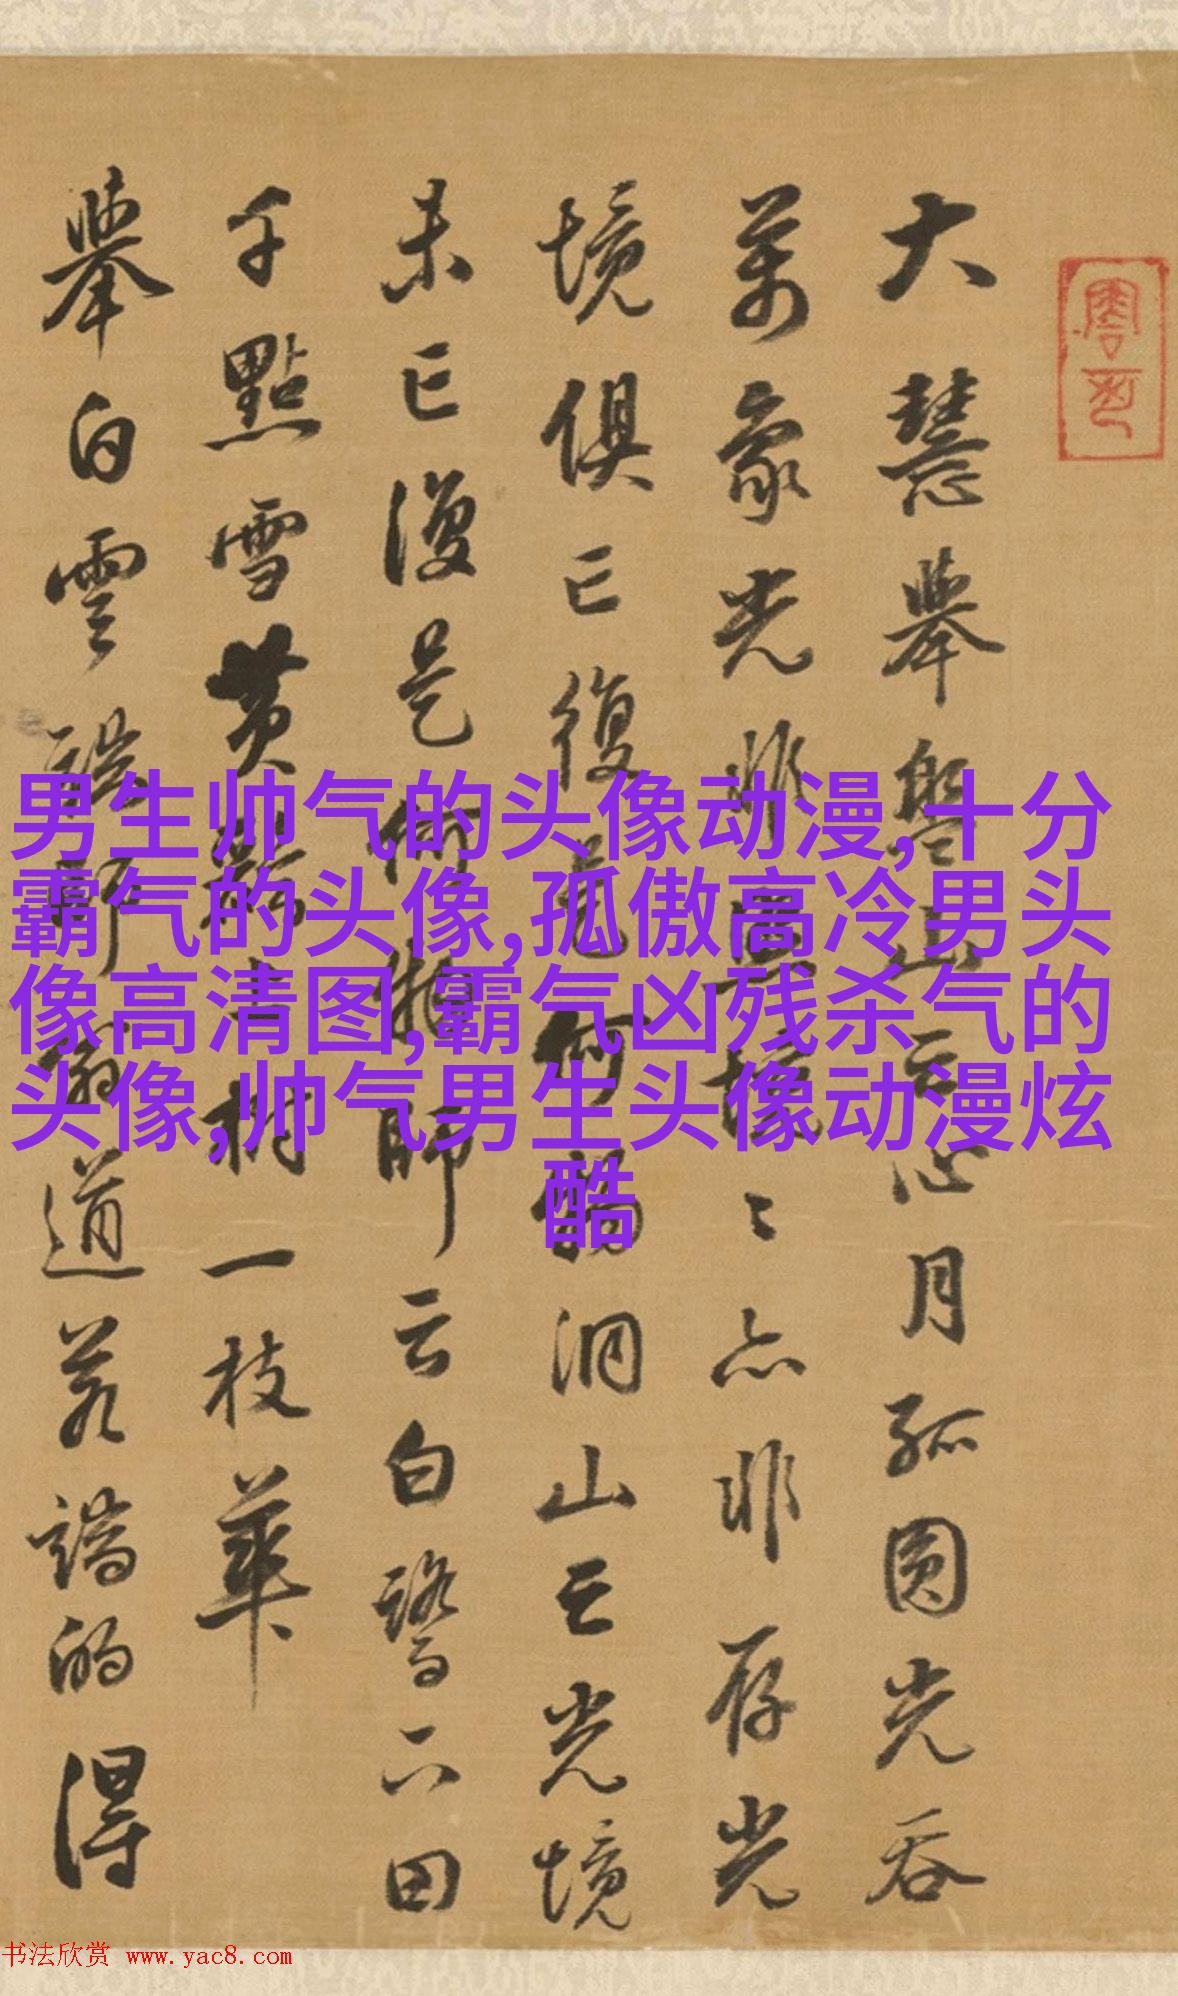 大慧舉盤山云心月孤圓光吞
萬象光非照境〻亦非存光
境俱亡復是何物洞山云光境
未亡復是何物師云白鷺下田
千點雪黃鸝上樹一枝華
舉白雲端師翁道若端的得
男生帅气的头像动漫,十分
霸气的头像,孤傲高冷男头
像高清图,霸气凶残杀气的
头像,帅气男生头像动漫炫
酷
书法欣赏 www.yac8.com